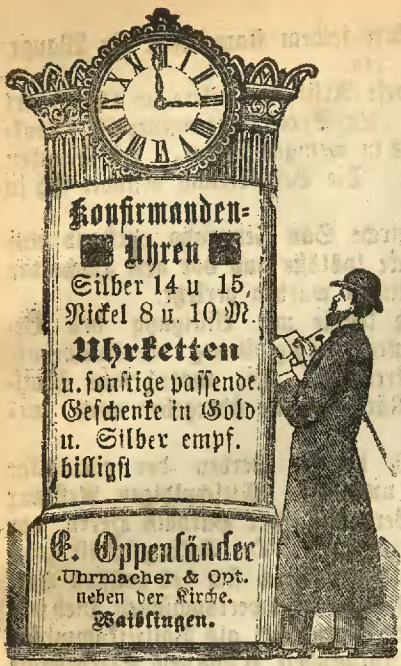 Konfirmanden=
Uhren
Silber 14 u 15,
Nickel 8 u. 10 M.
Uhrketten
u. sonstige passende
Geschenke in Gold
u. Silber empf.
billigst
E. Oppenländer
Uhrmacher & Opt.
neben der Kirche.
Waiblingen.